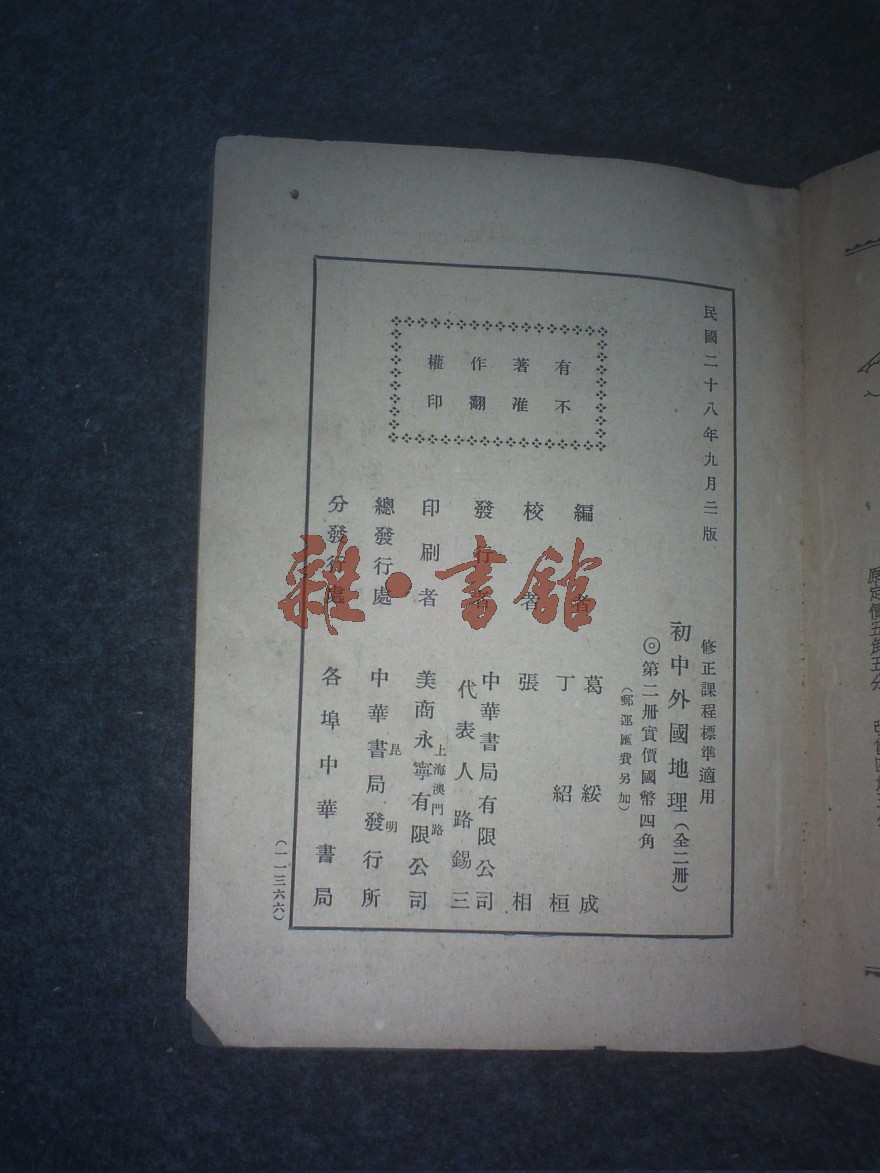 民國二十八年九月二版
修正課程標準適用
初中外國地理(全二册)
◎第二册實價國幣四角
(郵運匯費另加)
有不
著准
作翻
權印
編者 葛綏成
丁紹桓
校者 張相
發行者 中華書局有限公司
代表人路錫三
印刷者 上海澳門路
美商永寧有限公司
總發行處 昆明
中華書局發行所
分發行處 各埠中華書局
(一一三六六)
雜·書館